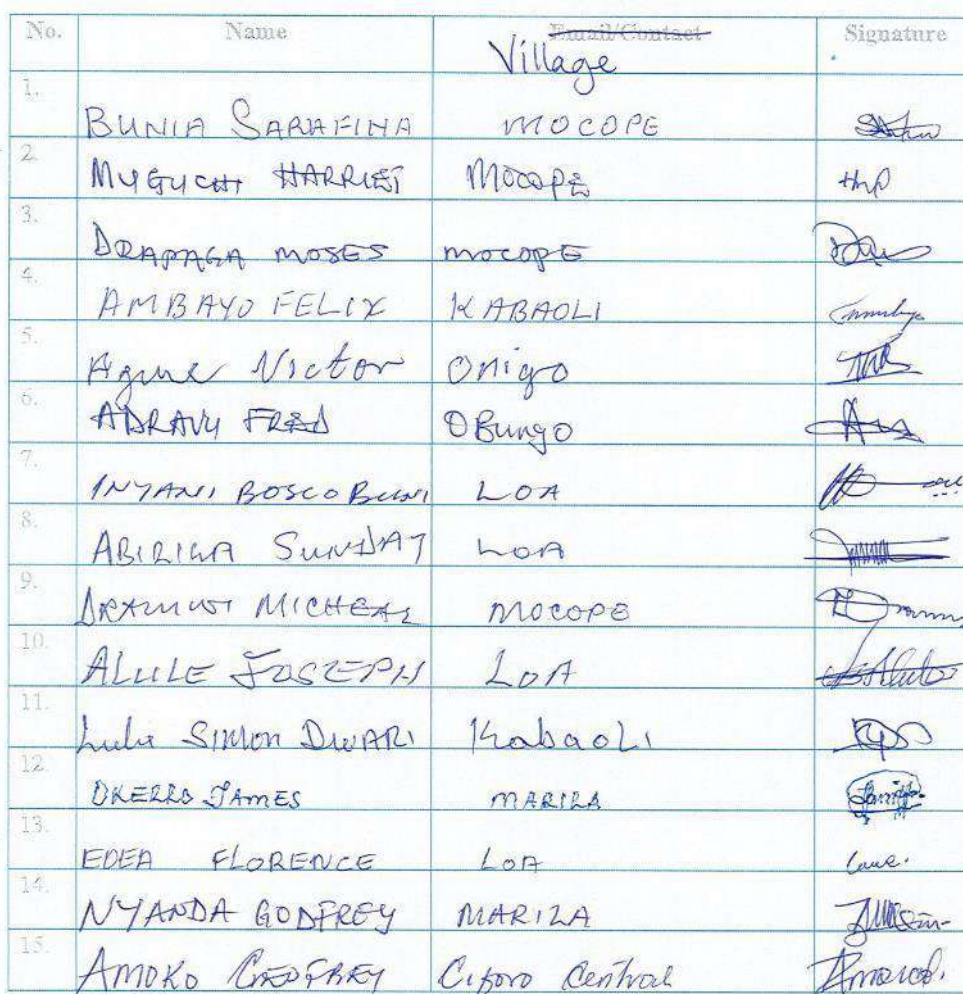 No. Name Email/Contact Signature
Village
1. BUNIA SARAFINA MOCOPE
2. MUGUCHI HARRIET MOCOPE
3. DRAPAGA MOSES MOCOPE
4. AMBAYO FELIX KABAOLI
5. Victor Onigo
6. ADRAVU FRED OBungo
7. INYANI BOSCO LOA
8. ABIRIGA SUNDAY LOA
9. MICHEAL MOCOPE
10. ALULE JOSZEPH LOA
11. SIMON DWARI KabaoLi
12. OKERRO JAMES
13. EDEA FLORENCE LOA
14. NYANDA GODFREY
15. AMOKO GEOFREY Central